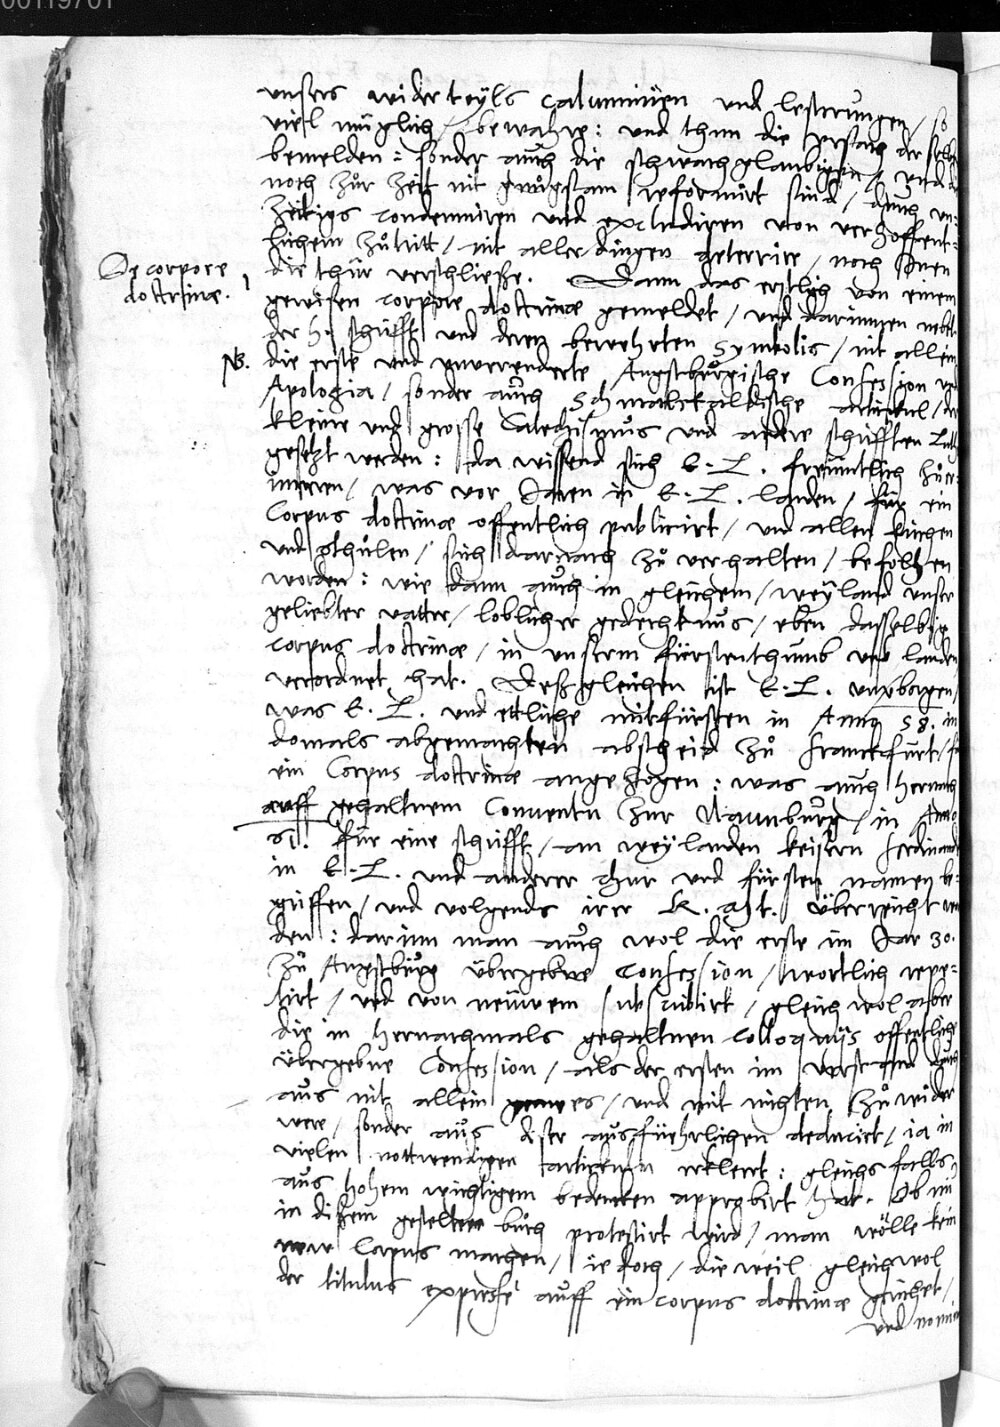 00119701
unsers widerteyls calumniien und lesterungen / so
viel müglich / bewahre: und thun die ursach der selben
bemelden: sonder auch die schwachglaubigen / und die
noch zur Zeit nit gnugsam reformirt sind / durch un-
zeitigs condemniren und excludiren von verhoffent-
lichem zutritt / nit aller dingen deterrire / noch inen
die thür verschliesse. Dann das erstlich von einem
De corpore
doctrinæ. 1
gewisen corpore doctrinæ gemeldet / und darinnen nebst
der h. schrifft und deren bewehrten Symbolis / nit allein
NB.
die erste und unverenderte Augspurgische Confession und
Apologia / sonder auch Schmalckaldische artickel / der
kleine und grosse Catechismus und andere schrifften Luth.
gesetzt werden: da wissend sich E. L. freuntlich zu er-
inneren / was vor Jaren in E. L. landen / für ein
Corpus doctrinæ offentlich publicirt / und allen kirchen
und schulen / sich darnach zu verhalten / befolhen
worden: wie dann auch in gleichem / weyland unser
geliebter vatter / loblicher gedechtnus / eben dasselbig
corpus doctrinæ / in unserm fürstenthumb und landen
verordnet hat. Deßgleichen ist E. L. unverborgen /
was E. L. und ettliche mitfürsten in Anno 58. in
domals abgemachten abscheid zu Franckfurt / für
ein Corpus doctrinæ angezogen: was auch hernach
auff gehaltnem Conventu zur Naumburg / in Anno
61. für eine schrifft / an weylanden keisern Ferdinand
in E. L. und anderer chur und fürsten namen be-
griffen / und volgends irer K. Mt. überreicht wor
den: darinn man auch wol die erste im Jar 30.
zu Augspurg übergebne Confession / wortlich repe-
tirt / und von neuwem subscribirt / gleichwol aber
die in hernachmals gehaltnen colloquiis offentlich
übergebne Confession / als der ersten im verstand durch
aus nit allein gemes / und mit nichten zuwider
were / sonder aus diser ausfüehrlichen deducirt / ia in
vielen nottwendigen artickeln erkleert: gleichsfalls
aus hohem wichtigem bedencken approbirt hat. Ob nu
in disem gestelten buch protestirt wird / man wölle kein
new Corpus machen / ie doch / die weil gleichwol
der titulus expresse auff ein corpus doctrinæ gerichtet /
und nomin